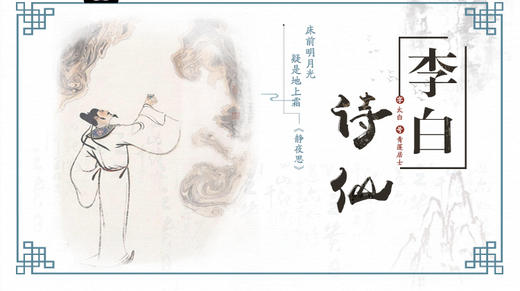 李白
字 太白 号 青莲居士
诗仙
床前明月光
疑是地上霜
《静夜思》